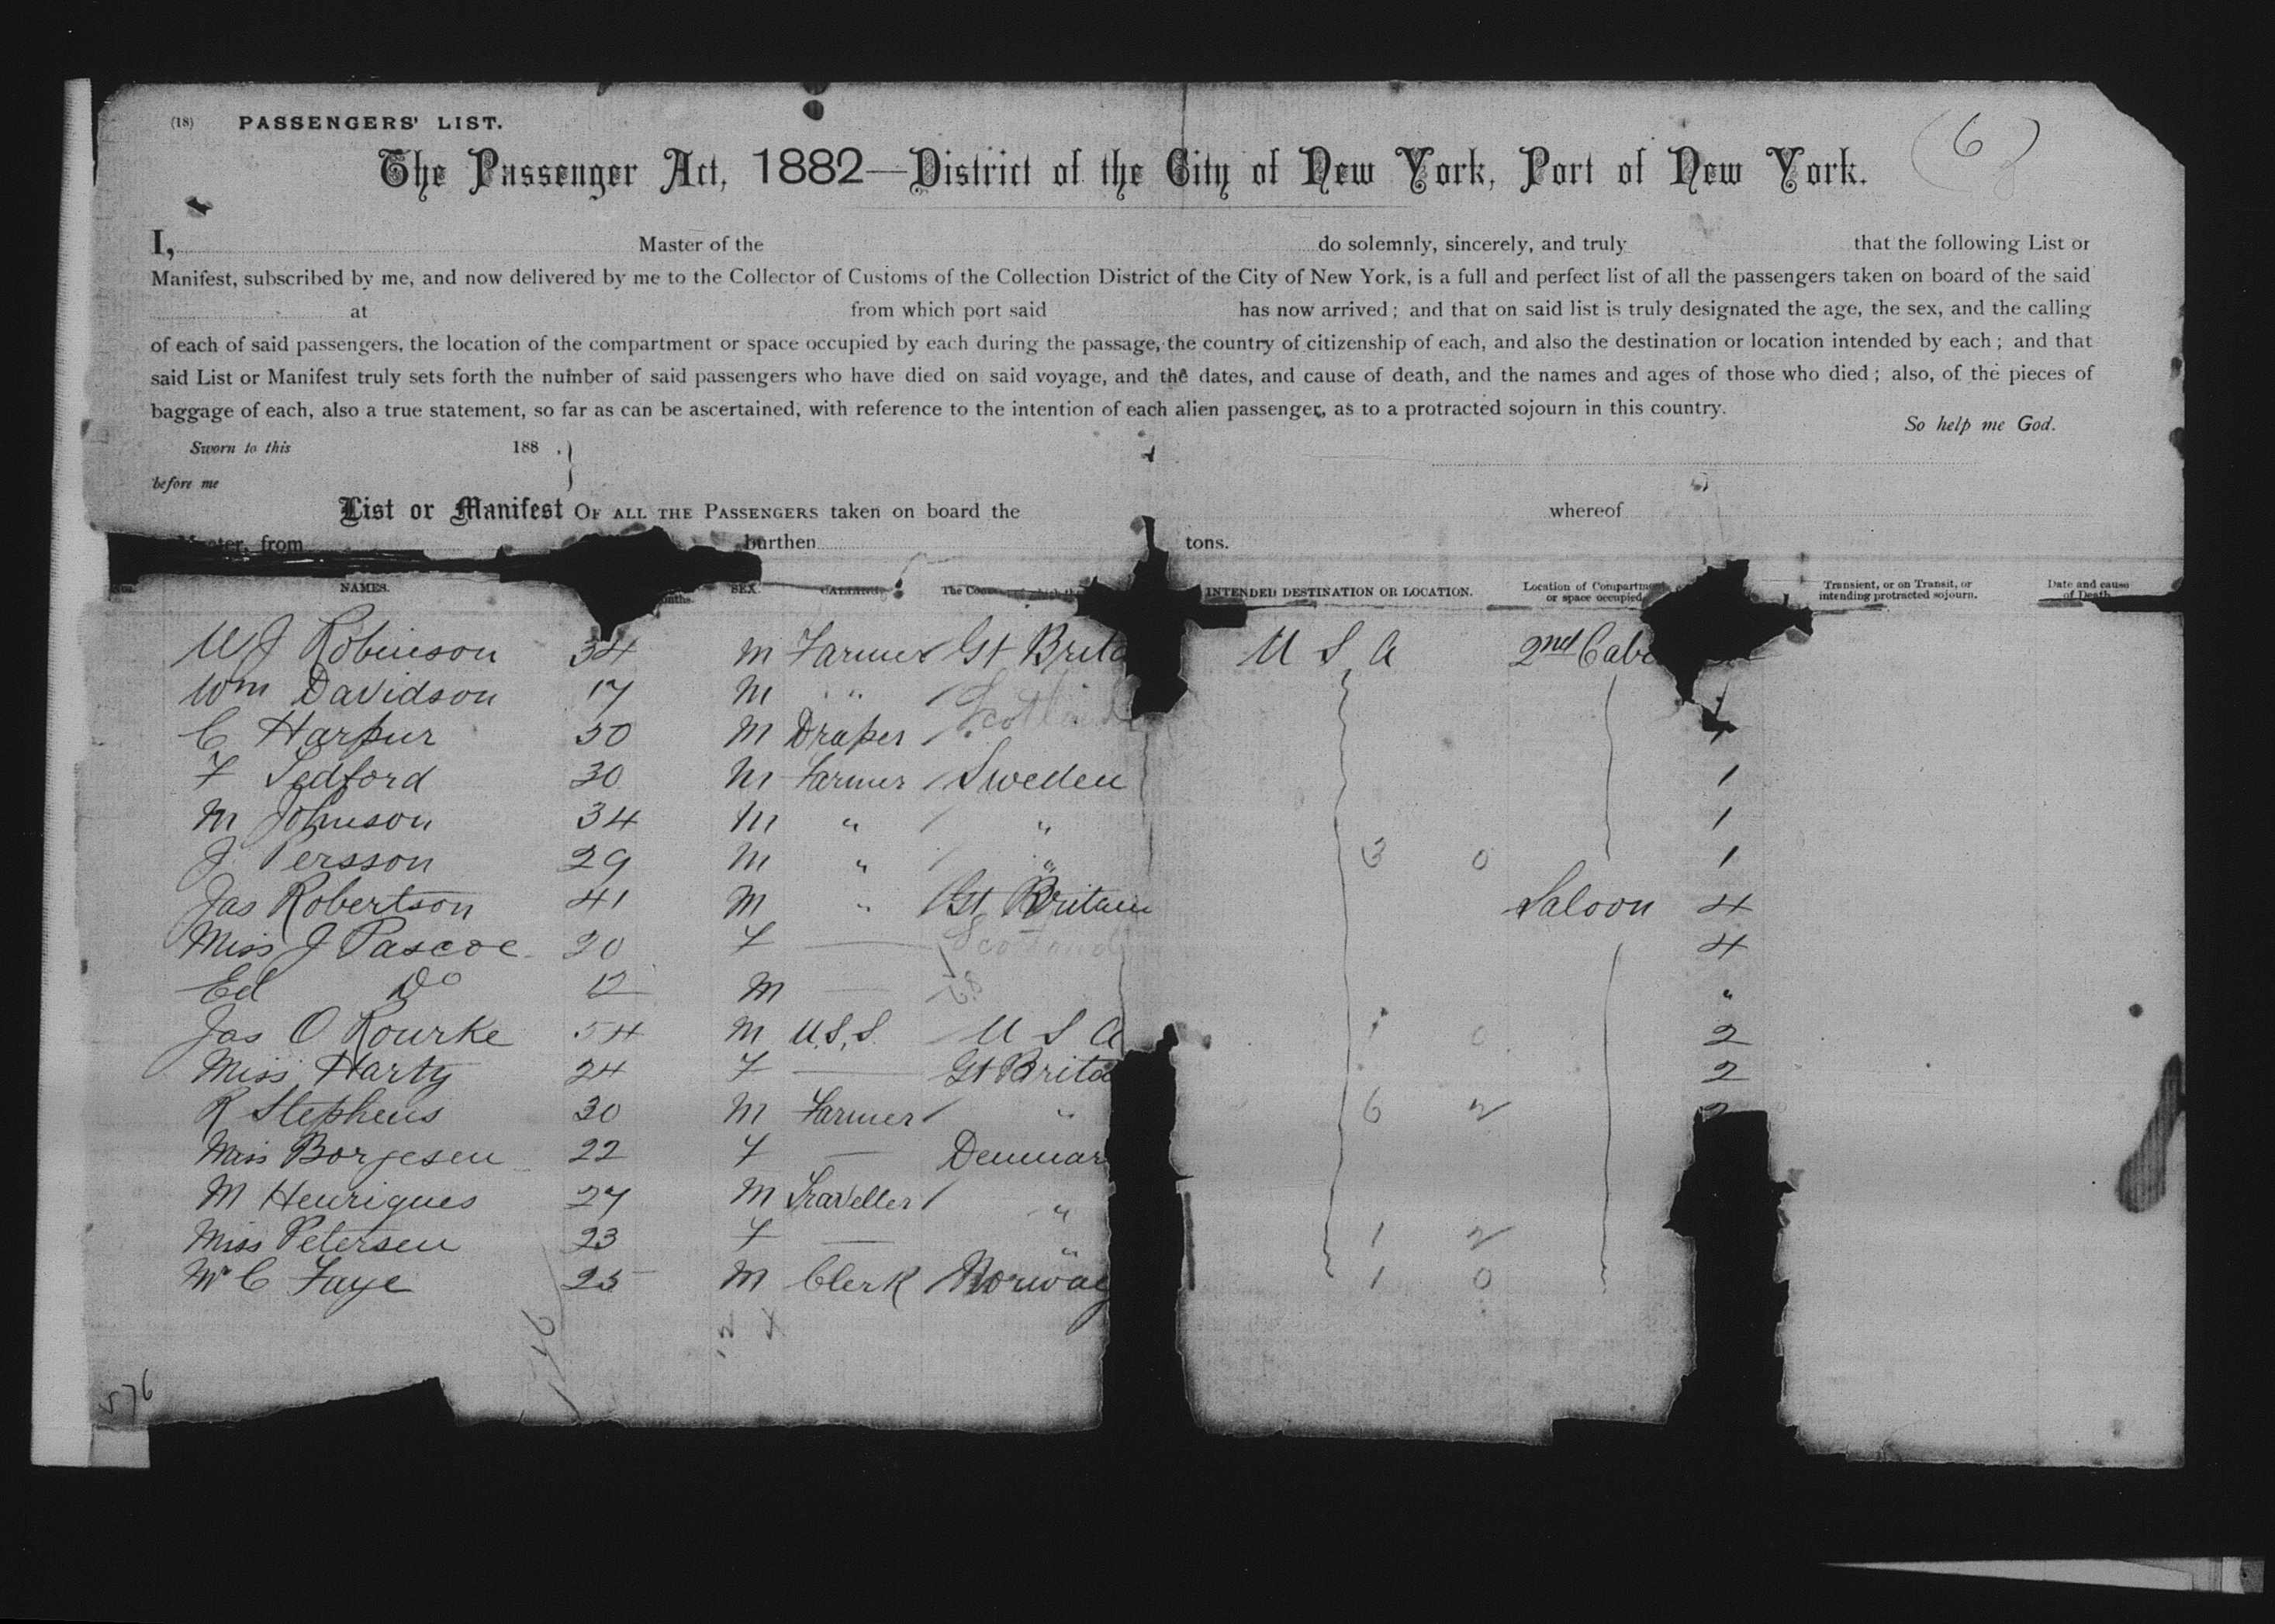 (18) PASSENGERS' LIST.
(6)
The Passenger Act, 1882—District of the City of New York, Port of New York.
I, Master of the do solemnly, sincerely, and truly that the following List or
Manifest, subscribed by me, and now delivered by me to the Collector of Customs of the Collection District of the City of New York, is a full and perfect list of all the passengers taken on board of the said
at from which port said has now arrived; and that on said list is truly designated the age, the sex, and the calling
of each of said passengers, the location of the compartment or space occupied by each during the passage, the country of citizenship of each, and also the destination or location intended by each; and that
said List or Manifest truly sets forth the number of said passengers who have died on said voyage, and the dates, and cause of death, and the names and ages of those who died; also, of the pieces of
baggage of each, also a true statement, so far as can be ascertained, with reference to the intention of each alien passenger, as to a protracted sojourn in this country.
So help me God.
Sworn to this 188 .
before me
List or Manifest OF ALL THE PASSENGERS taken on board the whereof
from burthen tons.
NAMES. SEX. CALLING. INTENDED DESTINATION OR LOCATION. Location of Compartment or space occupied Transient, or on Transit, or intending protracted sojourn. Date and cause of Death
W J Robinson 34 M Farmer Gt Brita U S A 2nd Cab
Wm Davidson 17 M " Scotland
C Harpur 50 M Draper 1
F Sedford 30 M Farmer Sweden 1
M Johnson 34 M " " 1
J. Persson 29 M " " 3 0 1
Jas Robertson 41 M " Gt Britain Saloon 4
Miss J Pascoe 20 F — Scotland 4
Ed Do 12 M — "
Jas O Rourke 54 M U.S.S. U S A 2
Miss Harty 24 F — Gt Brita 2
R Stephens 30 M Farmer " 6 2 2
Miss Borgesen 22 F — Denmar
M Henriques 27 M Traveller "
Miss Petersen 23 F — " 1 2
Mr C Faye 25 M Clerk Norway 1 0
576